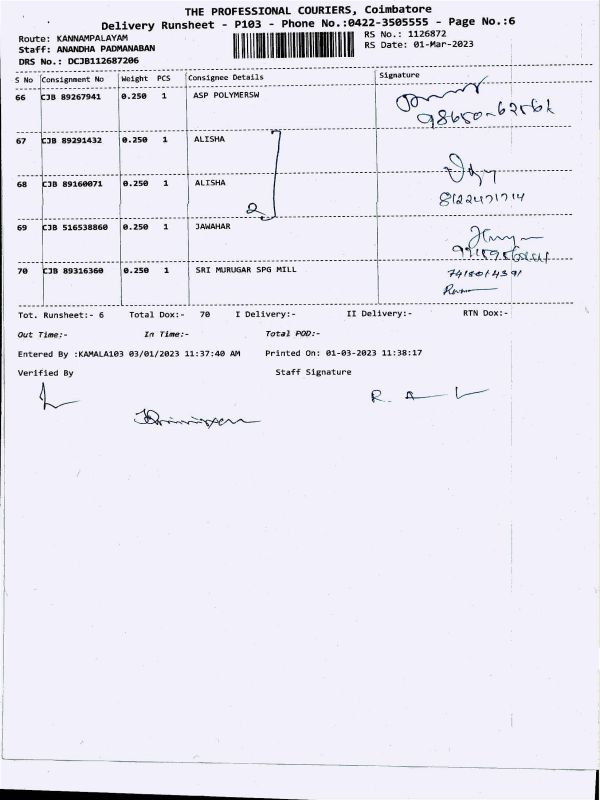 THE PROFESSIONAL COURIERS, Coimbatore
Delivery Runsheet - P103 - Phone No.:0422-3505555 - Page No.:6
Route: KANNAMPALAYAM
RS No.: 1126872
Staff: ANANDHA PADMANABAN
RS Date: 01-Mar-2023
DRS No.: DCJB112687206
S No Consignment No Weight PCS Consignee Details Signature
66 CJB 89267941 0.250 1 ASP POLYMERSW
67 CJB 89291432 0.250 1 ALISHA
68 CJB 89160071 0.250 1 ALISHA
2
8122471714
69 CJB 516538860 0.250 1 JAWAHAR
70 CJB 89316360 0.250 1 SRI MURUGAR SPG MILL
Tot. Runsheet:- 6 Total Dox:- 70 I Delivery:- II Delivery:- RTN Dox:-
Out Time:- In Time:- Total POD:-
Entered By :KAMALA103 03/01/2023 11:37:40 AM Printed On: 01-03-2023 11:38:17
Verified By Staff Signature